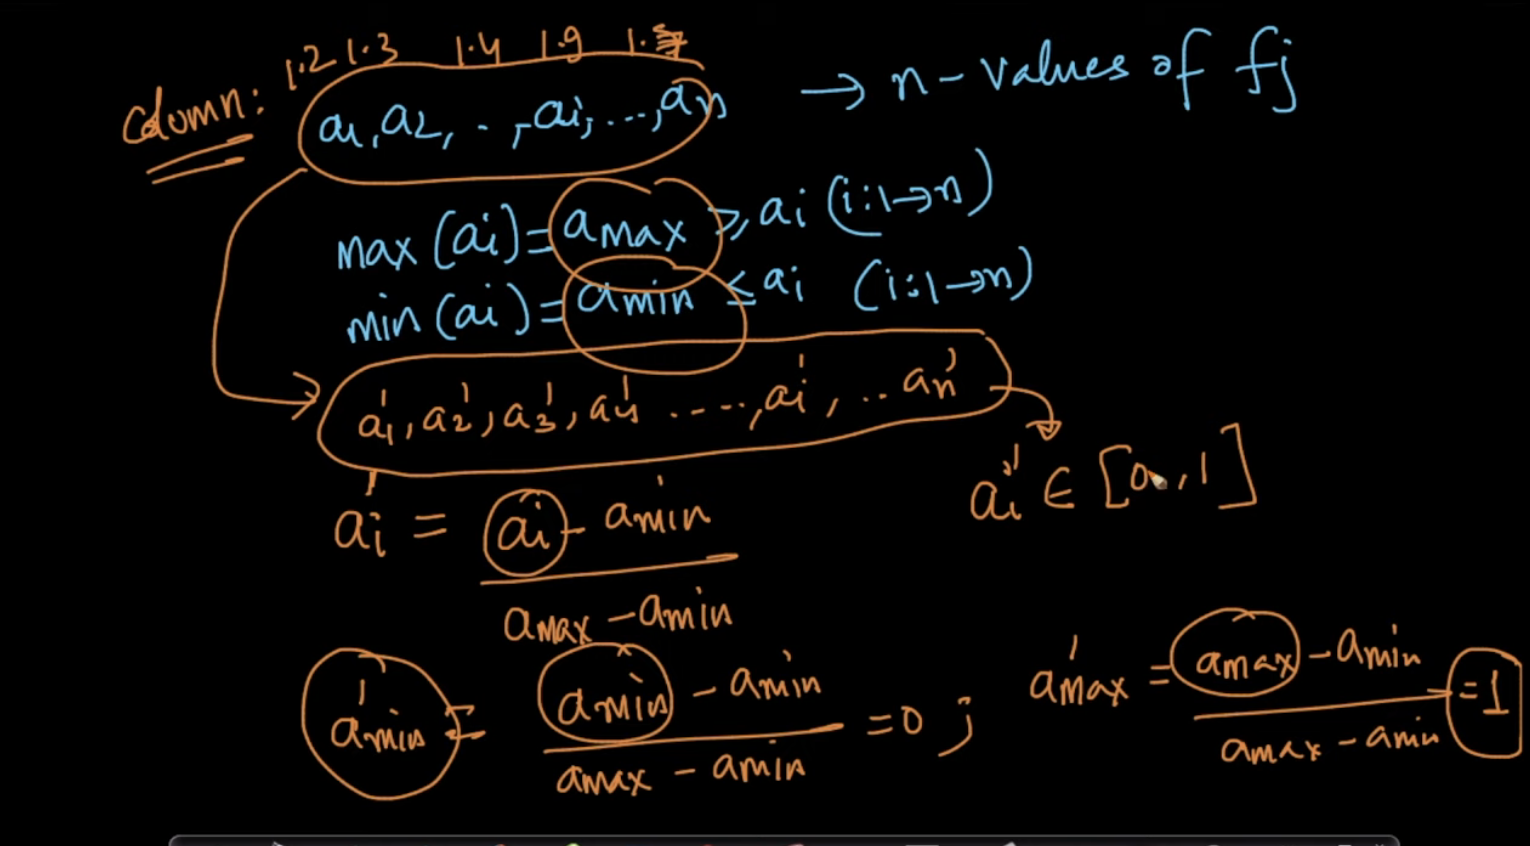 1.2 1.3 1.4 1.9 1.
Column: a1, a2, . , ai, ..., an → n-values of fj
max (ai) = amax ≥ ai (i:1→n)
min (ai) = amin ≤ ai (i:1→n)
a1', a2', a3', a4' ....., ai', .. an'
ai' ∈ [0, 1]
ai' = ai - amin
amax - amin
amin' = amin - amin = 0 ; amax' = amax - amin = 1
amax - amin amax - amin